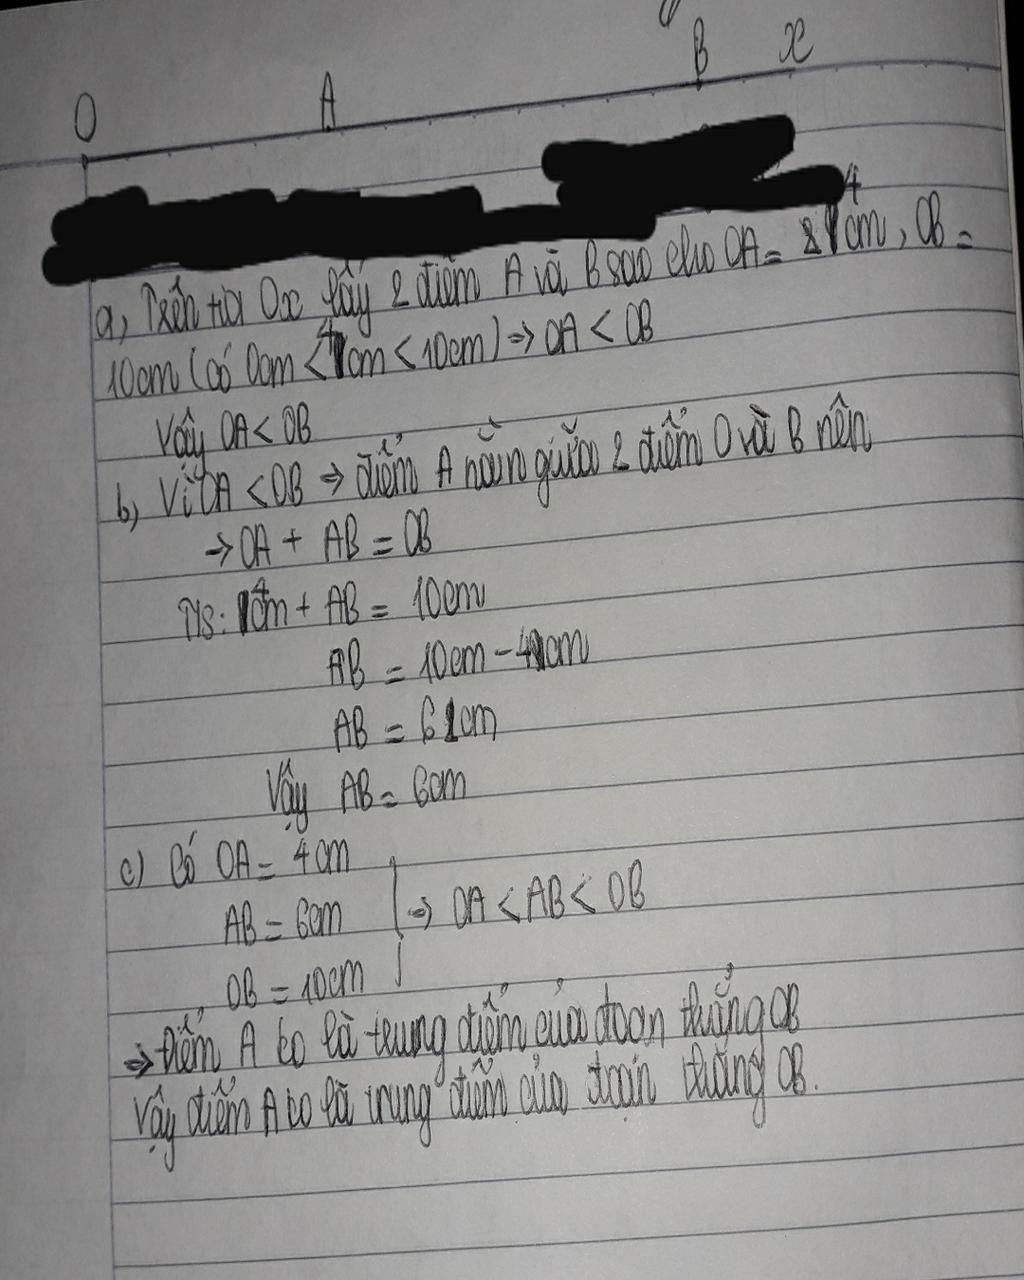 O A B x
a, Trên tia Ox lấy 2 điểm A và B sao cho OA = 4cm, OB =
10cm (có 0cm < 4cm < 10cm) ⇒ OA < OB
Vậy OA < OB
b, Vì OA < OB ⇒ điểm A nằm giữa 2 điểm O và B nên
→ OA + AB = OB
Ts: 4cm + AB = 10cm
AB = 10cm - 4cm
AB = 6cm
Vậy AB = 6cm
c) Có OA = 4cm
AB = 6cm ⇒ OA < AB < OB
OB = 10cm
⇒ Điểm A ko là trung điểm của đoạn thẳng OB
Vậy điểm A ko là trung điểm của đoạn thẳng OB.